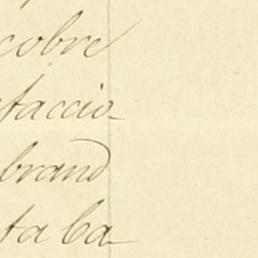 cobre
taccio-
brand
ta ba-